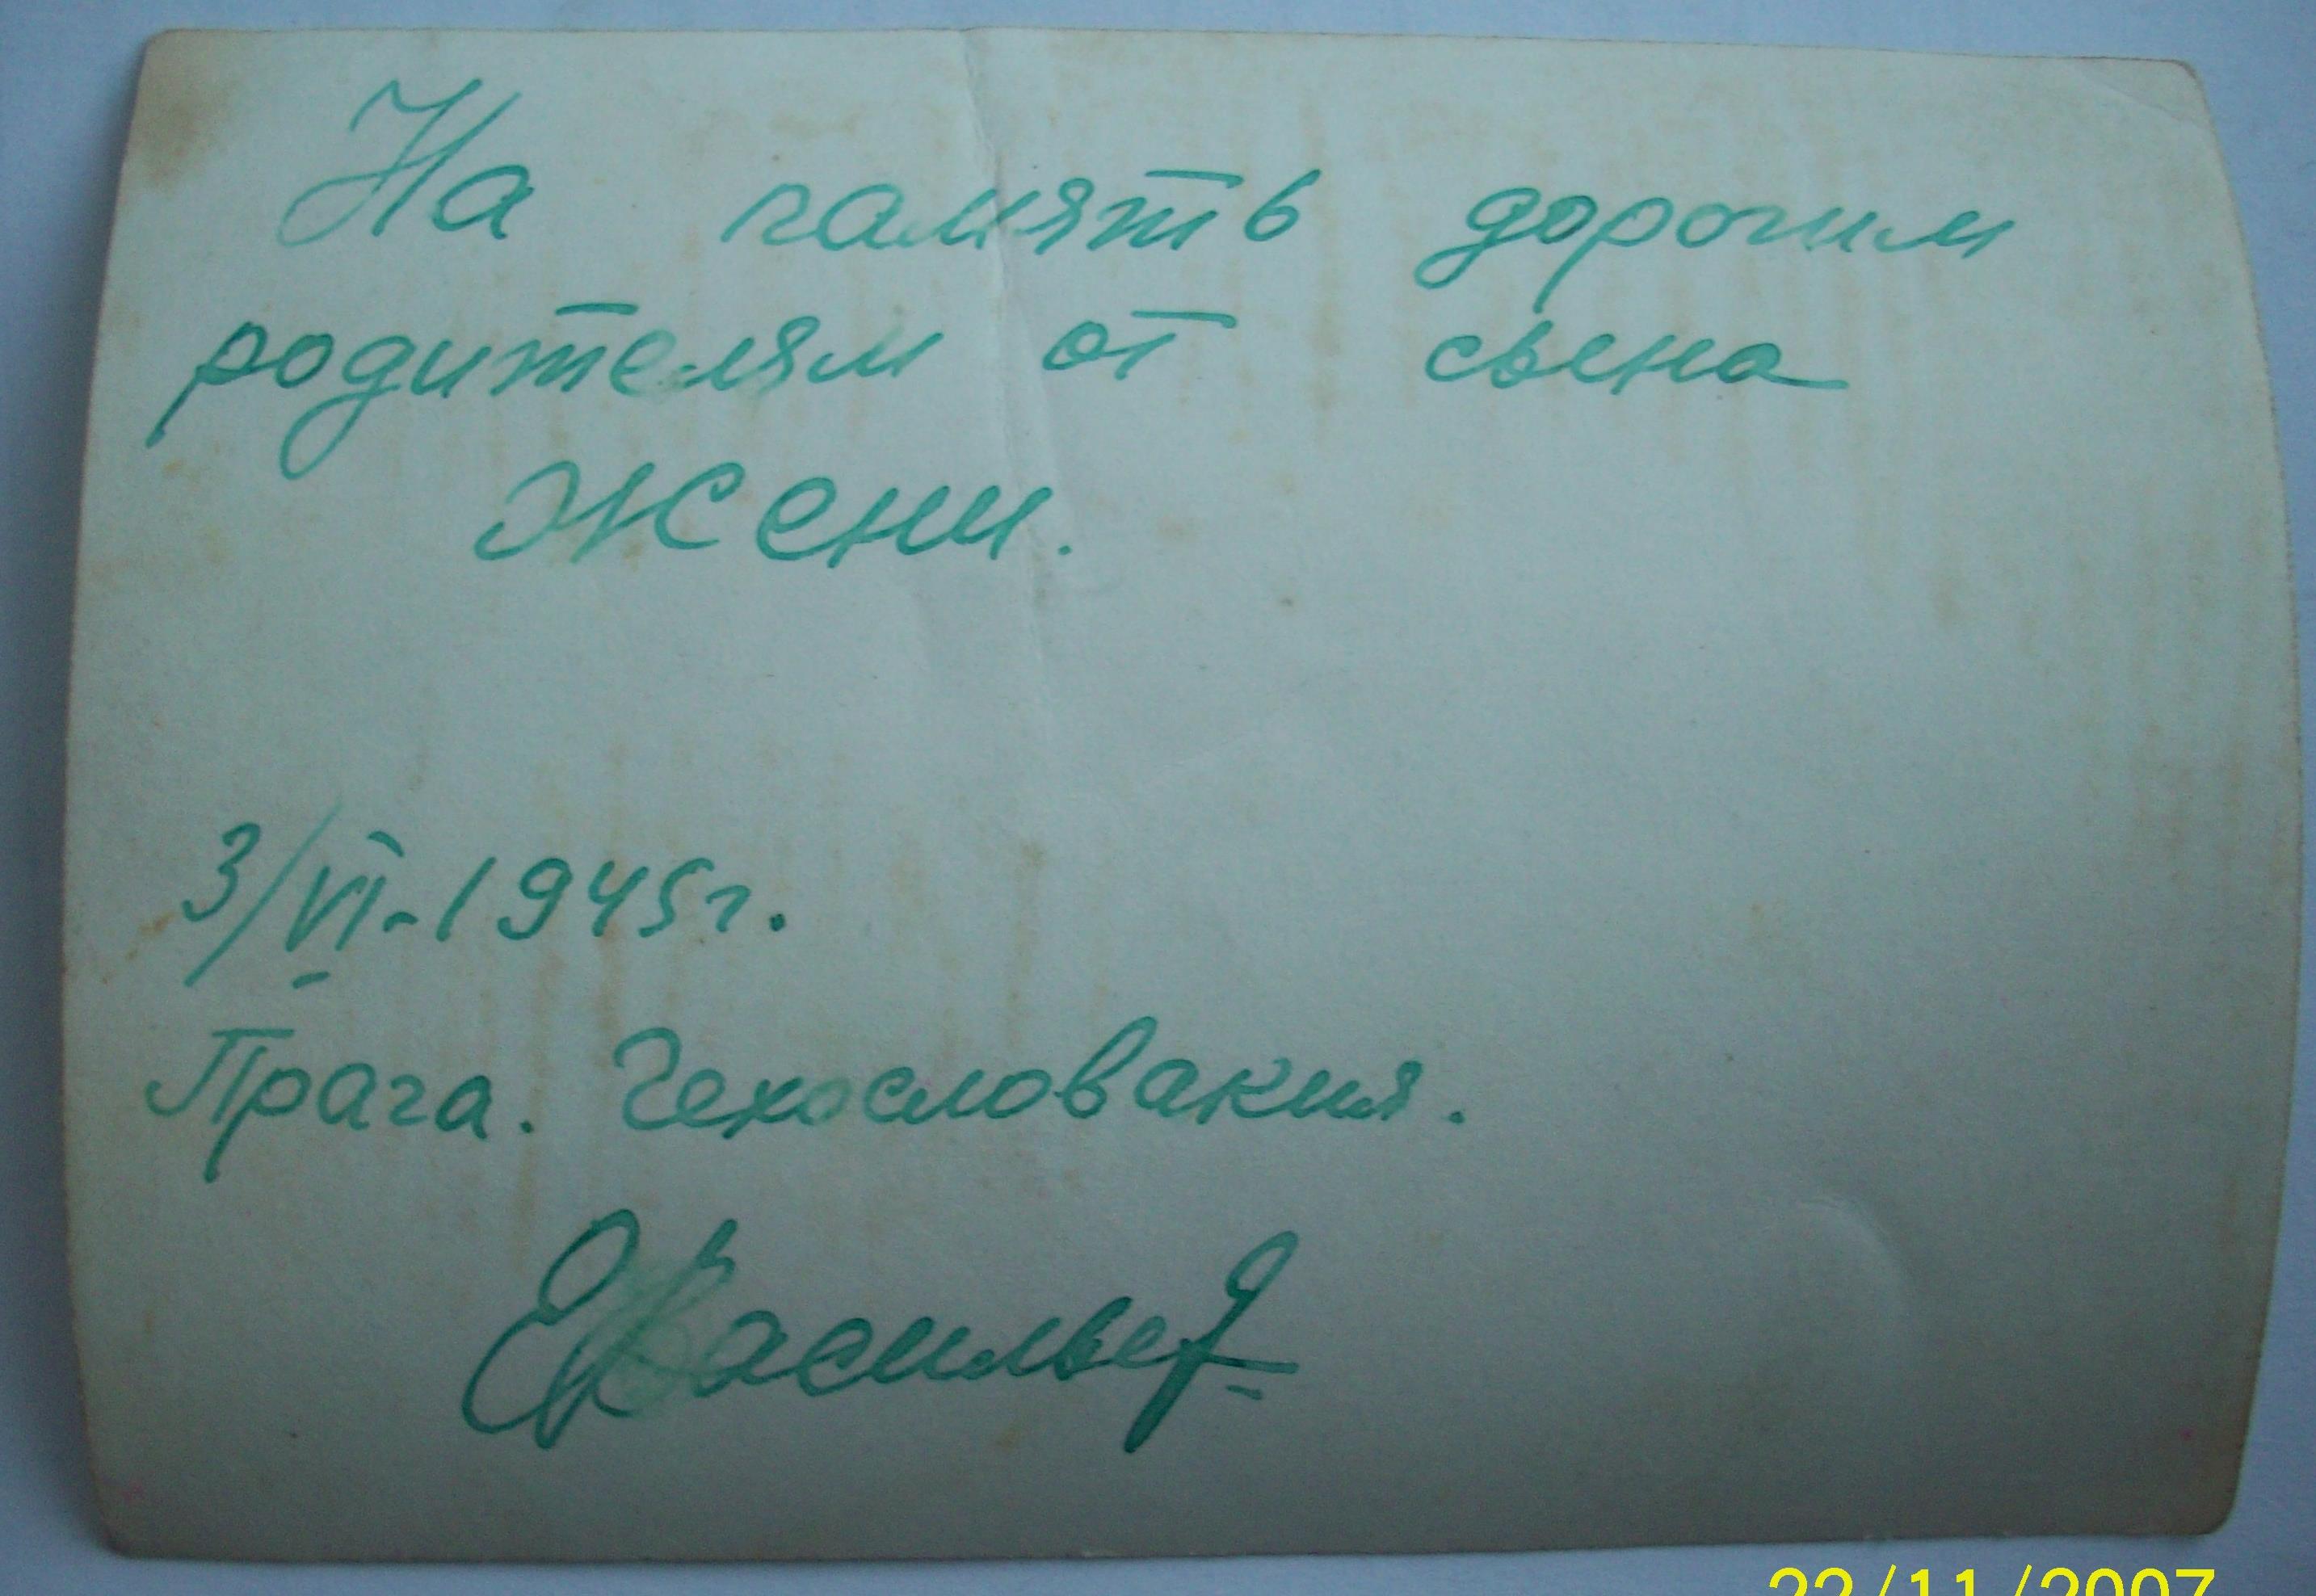 На память дорогим
родителям от сына
Жени.
3/VI-1945г.
Прага. Чехословакия.
ЕВасильев
22/11/2007